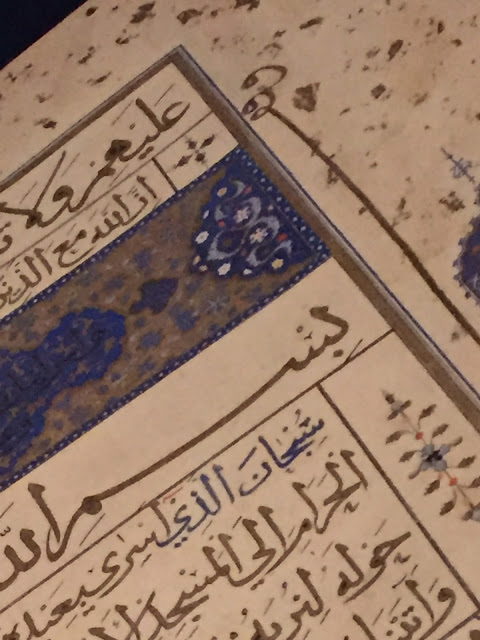 عليهم ولا
ان الله مع الذين
بسم الله
سبحان الذي اسرى بعبده
الحرام الى المسجد
حوله لنريه